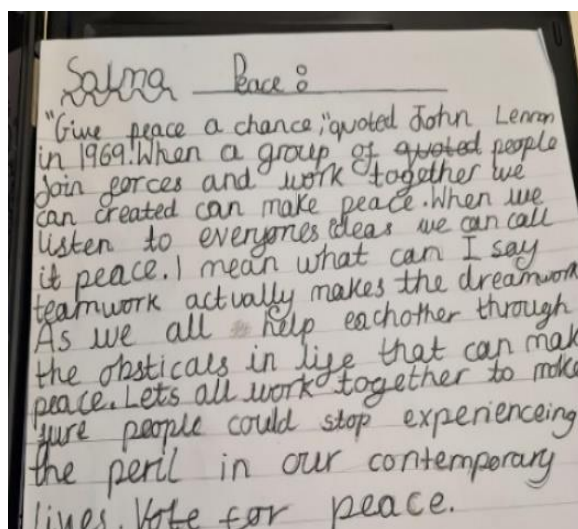 Salma Peace :
"Give peace a chance," quoted John Lennon
in 1969. When a group of quoted people
join forces and work together we
can created can make peace. When we
listen to everyones ideas we can call
it peace. I mean what can I say
teamwork actually makes the dreamwork
As we all help eachother through
the obsticals in life that can mak
peace. Lets all work together to make
sure people could stop experienceing
the peril in our contemporary
lives. Vote for peace.